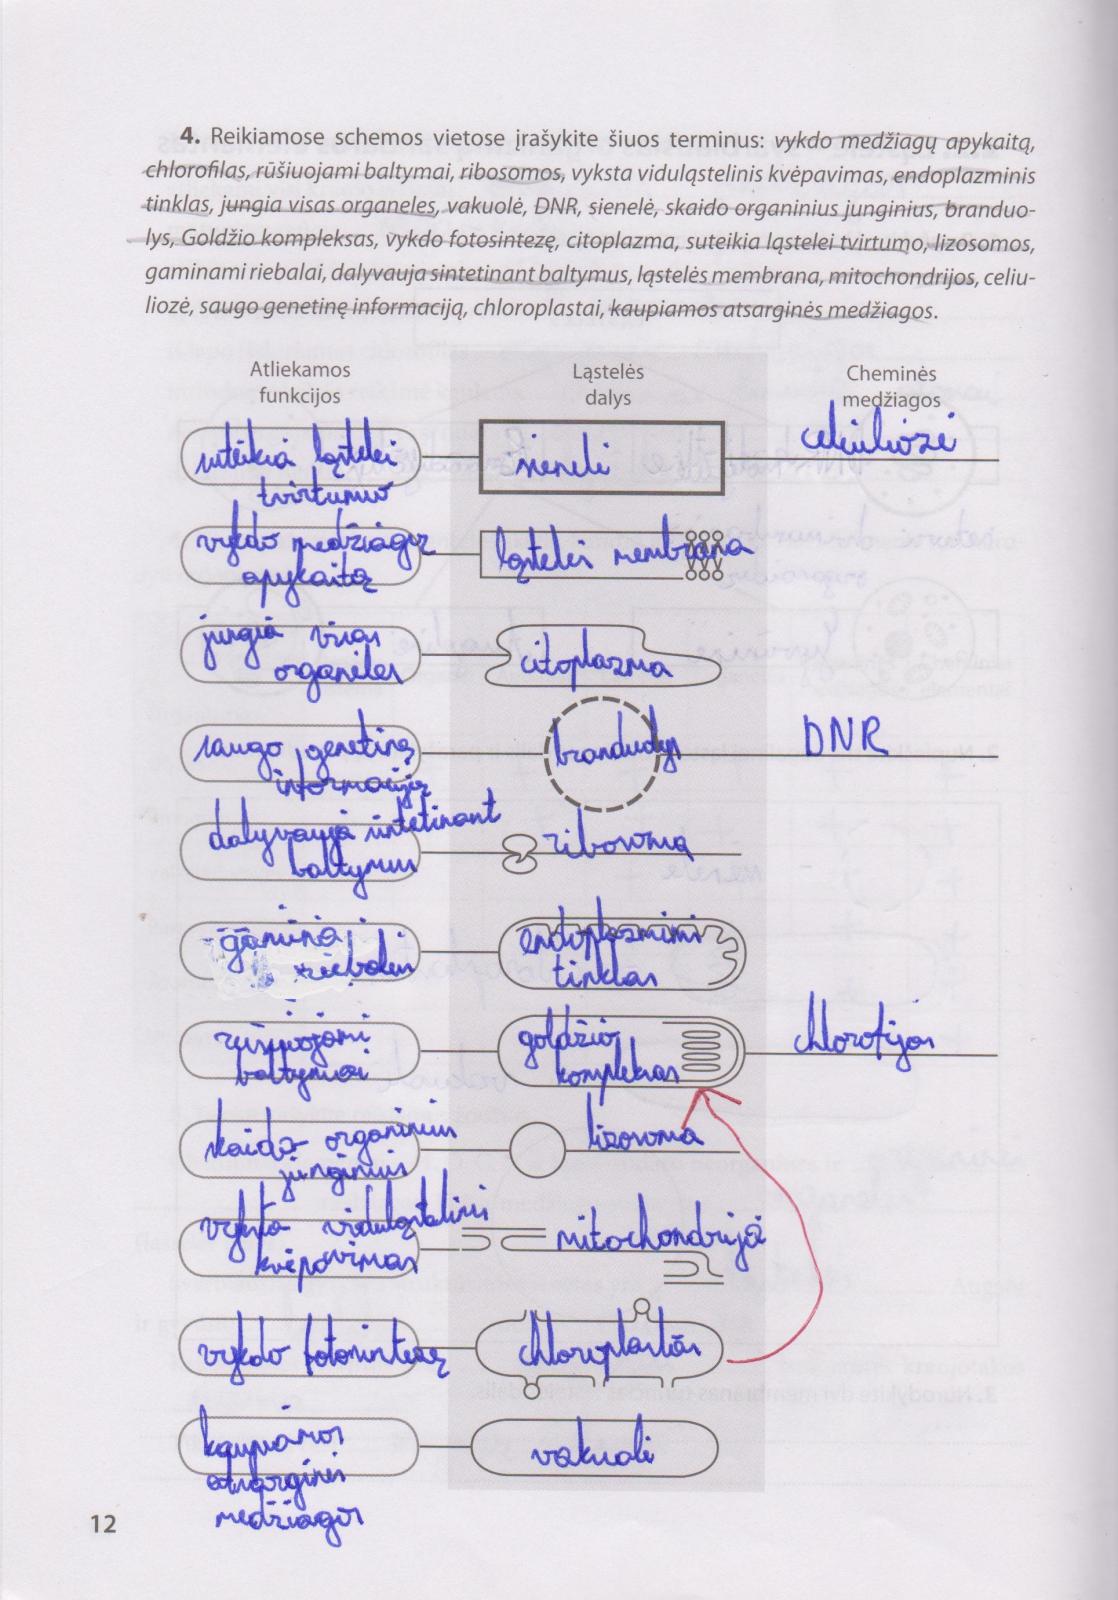 4. Reikiamose schemos vietose įrašykite šiuos terminus: vykdo medžiagų apykaitą,
chlorofilas, rūšiuojami baltymai, ribosomos, vyksta viduląstelinis kvėpavimas, endoplazminis
tinklas, jungia visas organeles, vakuolė, DNR, sienelė, skaido organinius junginius, branduo-
lys, Goldžio kompleksas, vykdo fotosintezę, citoplazma, suteikia ląstelei tvirtumo, lizosomos,
gaminami riebalai, dalyvauja sintetinant baltymus, ląstelės membrana, mitochondrijos, celiu-
liozė, saugo genetinę informaciją, chloroplastai, kaupiamos atsarginės medžiagos.
Atliekamos
funkcijos
Ląstelės
dalys
Cheminės
medžiagos
suteikia ląstelei
tvirtumo
sienelė
celiuliozė
vykdo medžiagų
apykaitą
ląstelės membrana
jungia visas
organeles
citoplazma
saugo genetinę
informaciją
branduolys
DNR
dalyvauja sintetinant
baltymus
ribosoma
gamina
riebalus
endoplazminis
tinklas
rūšiuojami
baltymai
goldžio
kompleksas
skaido organinius
junginius
lizosoma
vyksta viduląstelinis
kvėpavimas
mitochondrija
vykdo fotosintezę
chloroplastas
kaupiamos
atsarginės
medžiagos
vakuolė
12